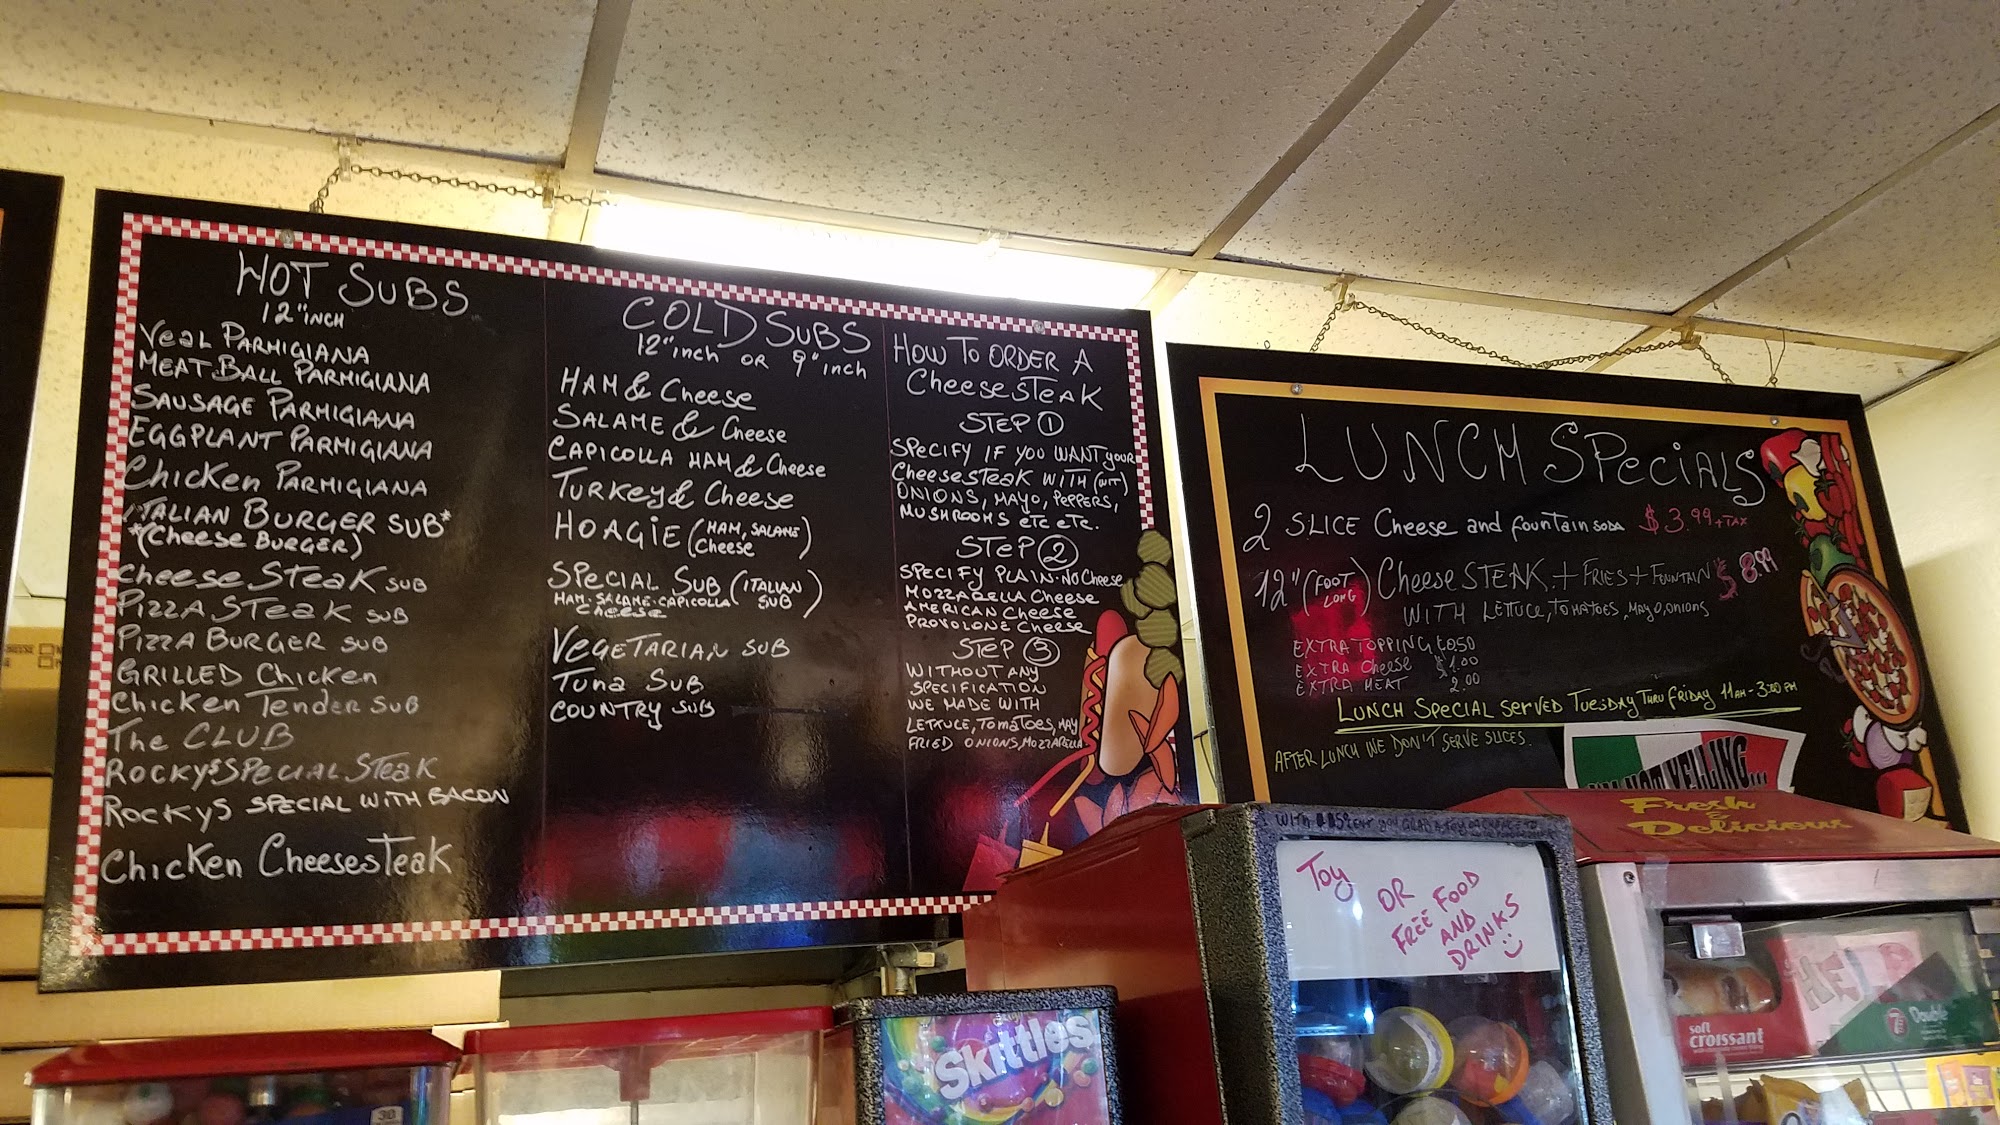 HOT SUBS
12" INCH
VEAL PARMIGIANA
MEAT BALL PARMIGIANA
SAUSAGE PARMIGIANA
EGGPLANT PARMIGIANA
Chicken PARMIGIANA
ITALIAN BURGER SUB*
*(Cheese BURGER)
Cheese STeaK SUB
PIZZA STeaK SUB
PIZZA BURGER SUB
GRILLED Chicken
Chicken Tender SUB
The CLUB
ROCKY'S SPECIAL STeaK
ROCKYS SPECIAL WITH BACON
Chicken CheesesTeak
COLD SUBS
12" inch OR 9" inch
HAM & Cheese
SALAME & Cheese
CAPICOLLA HAM & Cheese
TURKEY & Cheese
HOAGIE (HAM, SALAME
Cheese)
SPECIAL SUB (ITALIAN SUB)
HAM-SALAME-CAPICOLLA
Cheese
VEGETARIAN SUB
Tuna SUB
COUNTRY SUB
HOW TO ORDER A
CheesesTeaK
STEP 1
SPECIFY IF YOU WANT YOUR
CheesesTeaK WITH (WIT)
ONIONS, MAYO, PEPPERS,
MUSHROOMS etc etc.
STEP 2
SPECIFY PLAIN-NO Cheese
MOZZARELLA Cheese
AMERICAN Cheese
PROVOLONE Cheese
STEP 3
WITHOUT ANY
SPECIFICATION
WE MADE WITH
LETTUCE, TOMATOES, MAY
FRIED ONIONS, MOZZARELLA
LUNCH SPeciALS
2 SLICE Cheese and fountain SODA $3.99 + TAX
12" (FOOT LONG) CheeseSTEAK + FRIES + FOUNTAIN $8.99
WITH LETTUCE, TOMATOES, MAYO, ONIONS
EXTRA TOPPING £0.50
EXTRA Cheese $1.00
EXTRA MEAT 2.00
LUNCH SPECIAL SERVED TUESDAY THRU FRIDAY 11AM-3:00 PM
AFTER LUNCH WE DON'T SERVE SLICES.
NOT YELLING...
Fresh
&
Delicious
Toy
OR
FREE FOOD
AND
DRINKS
Skittles
soft
croissant
Double
30